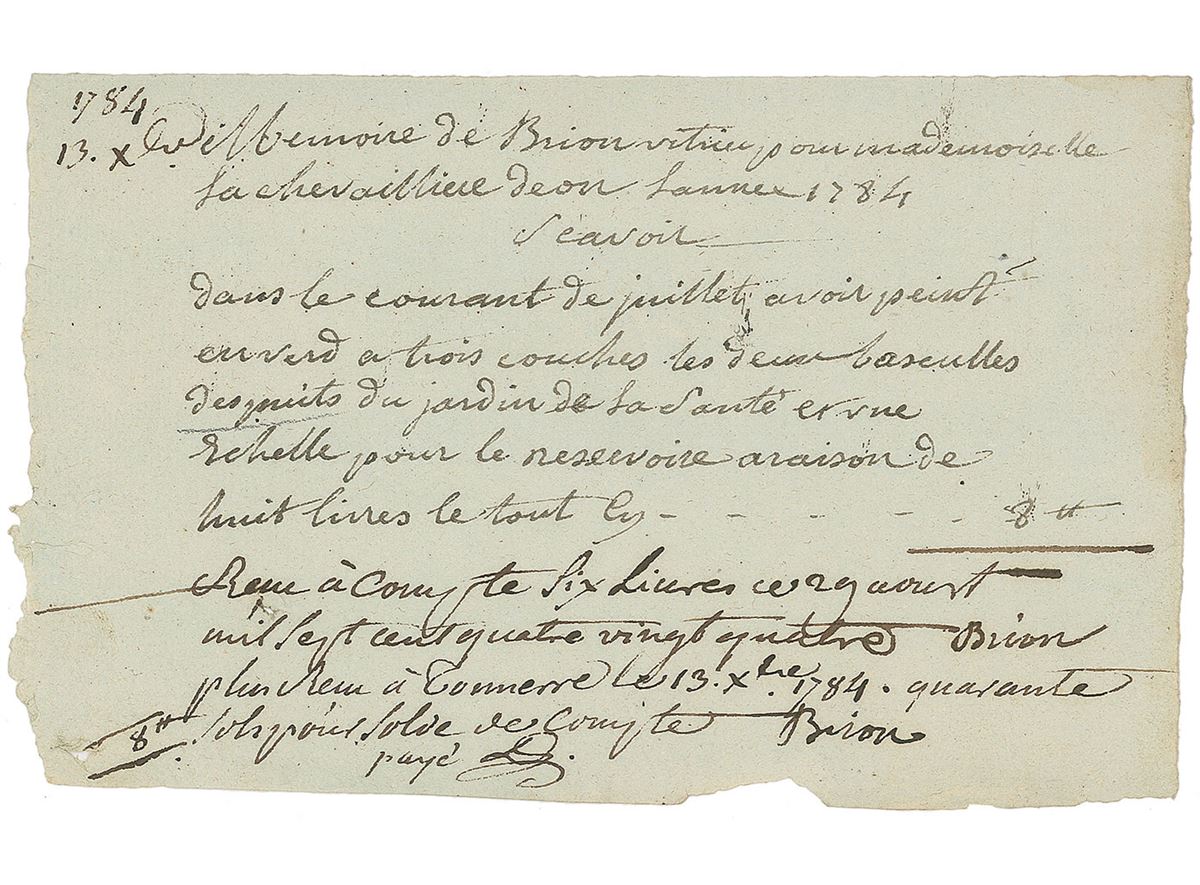 1784
13. Xbre Memoire de Brion vitrier pour mademoiselle
La chevailliere deon Lannee 1784
Scavoir
dans le courant de juillet avoir peint
en verd a trois couches les deux basculles
des puits du jardin de La Santé et une
Echelle pour le resevoire a raison de
huit livres le tout Cy - - - - - - 8 ₶
Recu à Compte Six Livres ce 29 aoust
mil Sept cent quatre vingt quatre Brion
plus Recu à Tonnerre le 13. Xbre 1784. quarante
8₶ Sols pour Solde de Compte Brion
payé